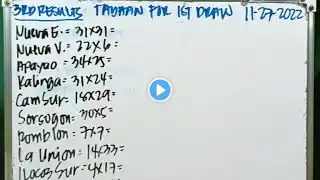 3RD RESULTS TABAAN FOR 1G DRAW 11-27-2022
NUEVA E. = 31x31=
NUEVA V. = 22x6=
Apayao = 34x25=
Kalinga = 31x24=
CamSur = 18x29=
Sorsogon = 30x5=
Romblon = 7x7=
La Union = 14x33=
Ilocos Sur = 4x17=